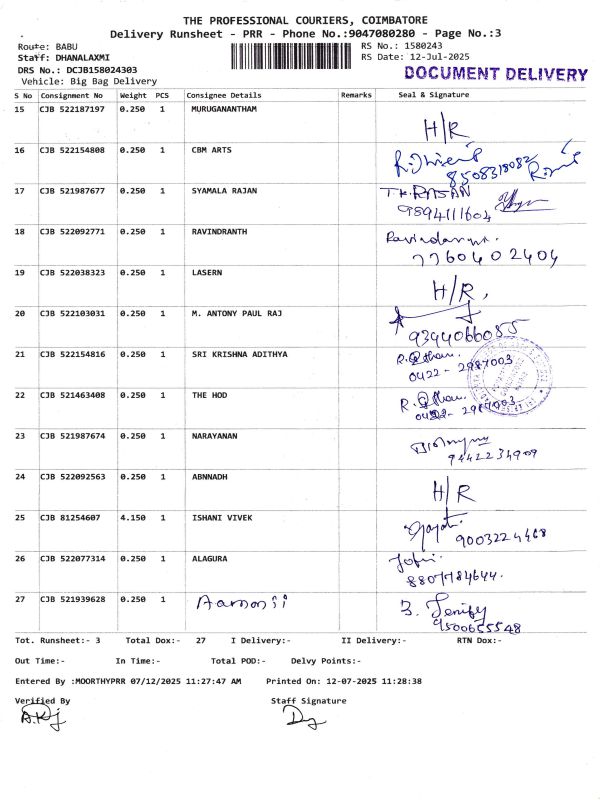 THE PROFESSIONAL COURIERS, COIMBATORE
Delivery Runsheet - PRR - Phone No.:9047080280 - Page No.:3
Route: BABU RS No.: 1580243
Staff: DHANALAXMI RS Date: 12-Jul-2025
DRS No.: DCJB158024303 DOCUMENT DELIVERY
Vehicle: Big Bag Delivery
S No Consignment No Weight PCS Consignee Details Remarks Seal & Signature
15 CJB 522187197 0.250 1 MURUGANANTHAM H/R
16 CJB 522154808 0.250 1 CBM ARTS
8508318082
17 CJB 521987677 0.250 1 SYAMALA RAJAN T.K.RAJAN
9894111604
18 CJB 522092771 0.250 1 RAVINDRANTH
7760402404
19 CJB 522038323 0.250 1 LASERN H/R,
20 CJB 522103031 0.250 1 M. ANTONY PAUL RAJ
9344066055
21 CJB 522154816 0.250 1 SRI KRISHNA ADITHYA
0422-2987003
22 CJB 521463408 0.250 1 THE HOD
0422-2987003
23 CJB 521987674 0.250 1 NARAYANAN
9442234909
24 CJB 522092563 0.250 1 ABNNADH H/R
25 CJB 81254607 4.150 1 ISHANI VIVEK
9003224468
26 CJB 522077314 0.250 1 ALAGURA
8807784644.
27 CJB 521939628 0.250 1
9500655548
Tot. Runsheet:- 3 Total Dox:- 27 I Delivery:- II Delivery:- RTN Dox:-
Out Time:- In Time:- Total POD:- Delvy Points:-
Entered By :MOORTHYPRR 07/12/2025 11:27:47 AM Printed On: 12-07-2025 11:28:38
Verified By Staff Signature